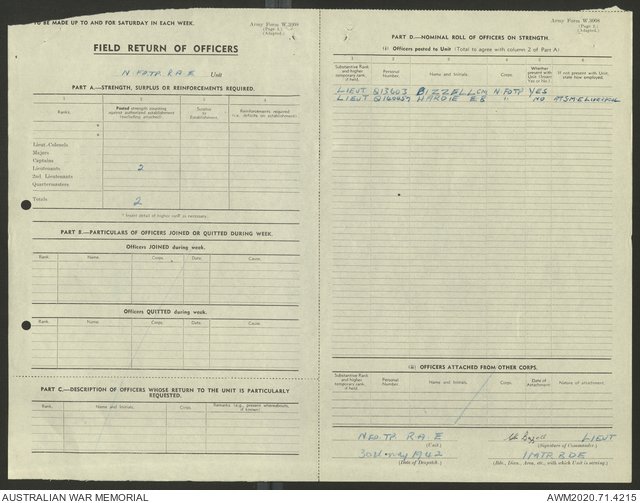 TO BE MADE UP TO AND FOR SATURDAY IN EACH WEEK.
Army Form W.3008
(Page 1.)
(Adapted.)
FIELD RETURN OF OFFICERS
N FDTP R A E Unit
PART A.—STRENGTH, SURPLUS OR REINFORCEMENTS REQUIRED.
1 2 3 4
Ranks. Posted strength counting against authorized establishment (excluding attached). Surplus to Establishment. Reinforcements required (i.e. deficits on establishment).
*
*
Lieut.-Colonels
Majors
Captains
Lieutenants 2
2nd Lieutenants
Quartermasters
Totals 2
* Insert detail of higher rank as necessary.
PART B.—PARTICULARS OF OFFICERS JOINED OR QUITTED DURING WEEK.
Officers JOINED during week.
Rank. Name. Corps. Date. Cause.
Officers QUITTED during week.
Rank. Name. Corps. Date. Cause.
PART C.—DESCRIPTION OF OFFICERS WHOSE RETURN TO THE UNIT IS PARTICULARLY REQUESTED.
Rank. Name and Initials. Corps. Remarks (e.g., present whereabouts, if known).
Army Form W.3008
(Page 2.)
(Adapted.)
PART D.—NOMINAL ROLL OF OFFICERS ON STRENGTH.
(i) Officers posted to Unit (Total to agree with column 2 of Part A).
1 2 3 4 5 6
Substantive Rank and higher temporary rank, if held. Personal Number. Name and Initials. Corps. Whether present with Unit (Insert Yes or No.) If not present with Unit, state how employed.
LIEUT Q13603 BIZZELL CM N FDTP YES
LIEUT HARDIE E B " NO
(ii) OFFICERS ATTACHED FROM OTHER CORPS.
Substantive Rank and higher temporary rank, if held. Personal Number. Name and Initials. Corps. Date of Attachment Nature of attachment.
R A E
(Unit.)
LIEUT
(Signature of Commander.)
1942
(Date of Despatch.)
(Bde., Divn., Area, etc., with which Unit is serving.)
AUSTRALIAN WAR MEMORIAL
AWM2020.71.4215